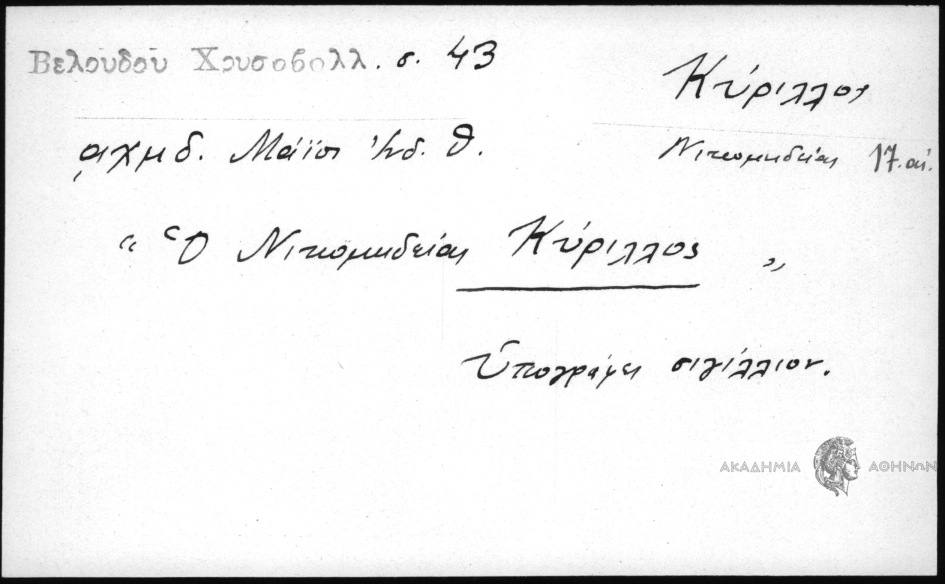 Βελούδου Χρυσοβολλ. σ. 43
Κύριλλος
Νικομηδείας 17. αἰ.
͵αχμδ. Μάϊσι Ἰνδ. θ.
“ Ὁ Νικομηδείας Κύριλλος „
Ὑπογράφει σιγίλλιον.
ΑΚΑΔΗΜΙΑ ΑΘΗΝΩΝ